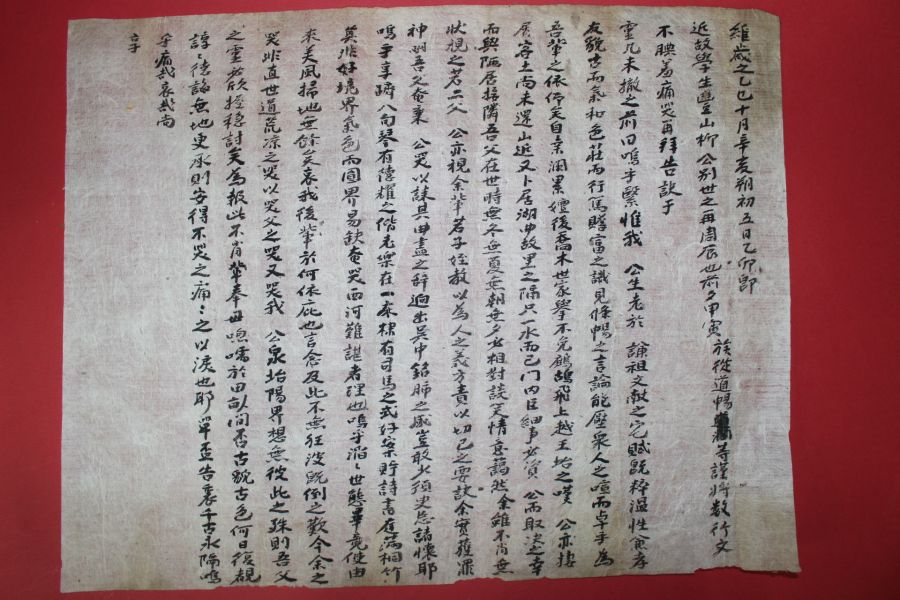 維歲之乙巳十月辛亥朔初五日乙卯卽
近故學生豊山柳公別世之再周辰也前夕甲寅 族從道暢 等謹將數行文
不腆羞痛哭再拜告訣于
靈几未撤之前曰嗚乎繄惟我 公生老於 先祖文獻之宅賦旣粹溫性兼孝
友貌古而氣和色莊而行篤贍富之識見條暢之言論能壓衆人之喧而卓乎爲
吾輩之依仰矣自京湖累嬗後喬木世家擧不免鷓鴣飛上越王坮之嘆 公亦捿
屑寄土尚未還山近又卜居湖曲故里之隔只一水而已門內巨細事必資 公而取決之幸
而與陋居接隣吾父在世時無冬無夏無朝無夕必相對談笑情意藹然余雖不肖無
狀視之若一父 公亦視余輩若子姪敎以爲人之義方責以切己之要訣余實獲罪
神明吾父奄棄 公哭以誄其曲盡之辭逈出 中銘肺之感豈敢少須臾忘諸懷耶
嗚乎享隮八旬琴有倩耀之偕老樂在一 棣有司馬之式好案貯詩書庭滿桐竹
莫非好境界氣色而圓界易缺奄哭西河難諶者理也嗚乎滔滔世態畢竟使由
來美風掃地無餘矣哀我後輩於何依庇也言念及此不無狂 旣倒之歎今余之
哭非直世道荒凉之哭以哭父之哭又哭我 公泉坮陽界想無彼此之殊則吾父
之靈必欣握穩討矣爲報此不肖輩奉母喣濡於田畝間否古貌古色何日復覩
諄諄德誨無地更承則安得不哭之痛痛之以淚也耶單盃告衷千古永隔嗚
乎痛哉哀哉尚